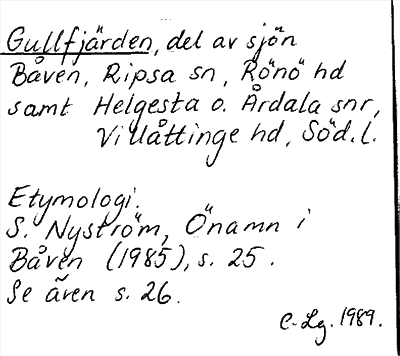 Gullfjärden, del av sjön
Båven, Ripsa sn, Rönö hd
samt Helgesta o. Årdala snr,
Villåttinge hd, Söd. l.
Etymologi.
S. Nyström, Önamn i
Båven (1985), s. 25.
Se även s. 26.
C-Lg. 1989.